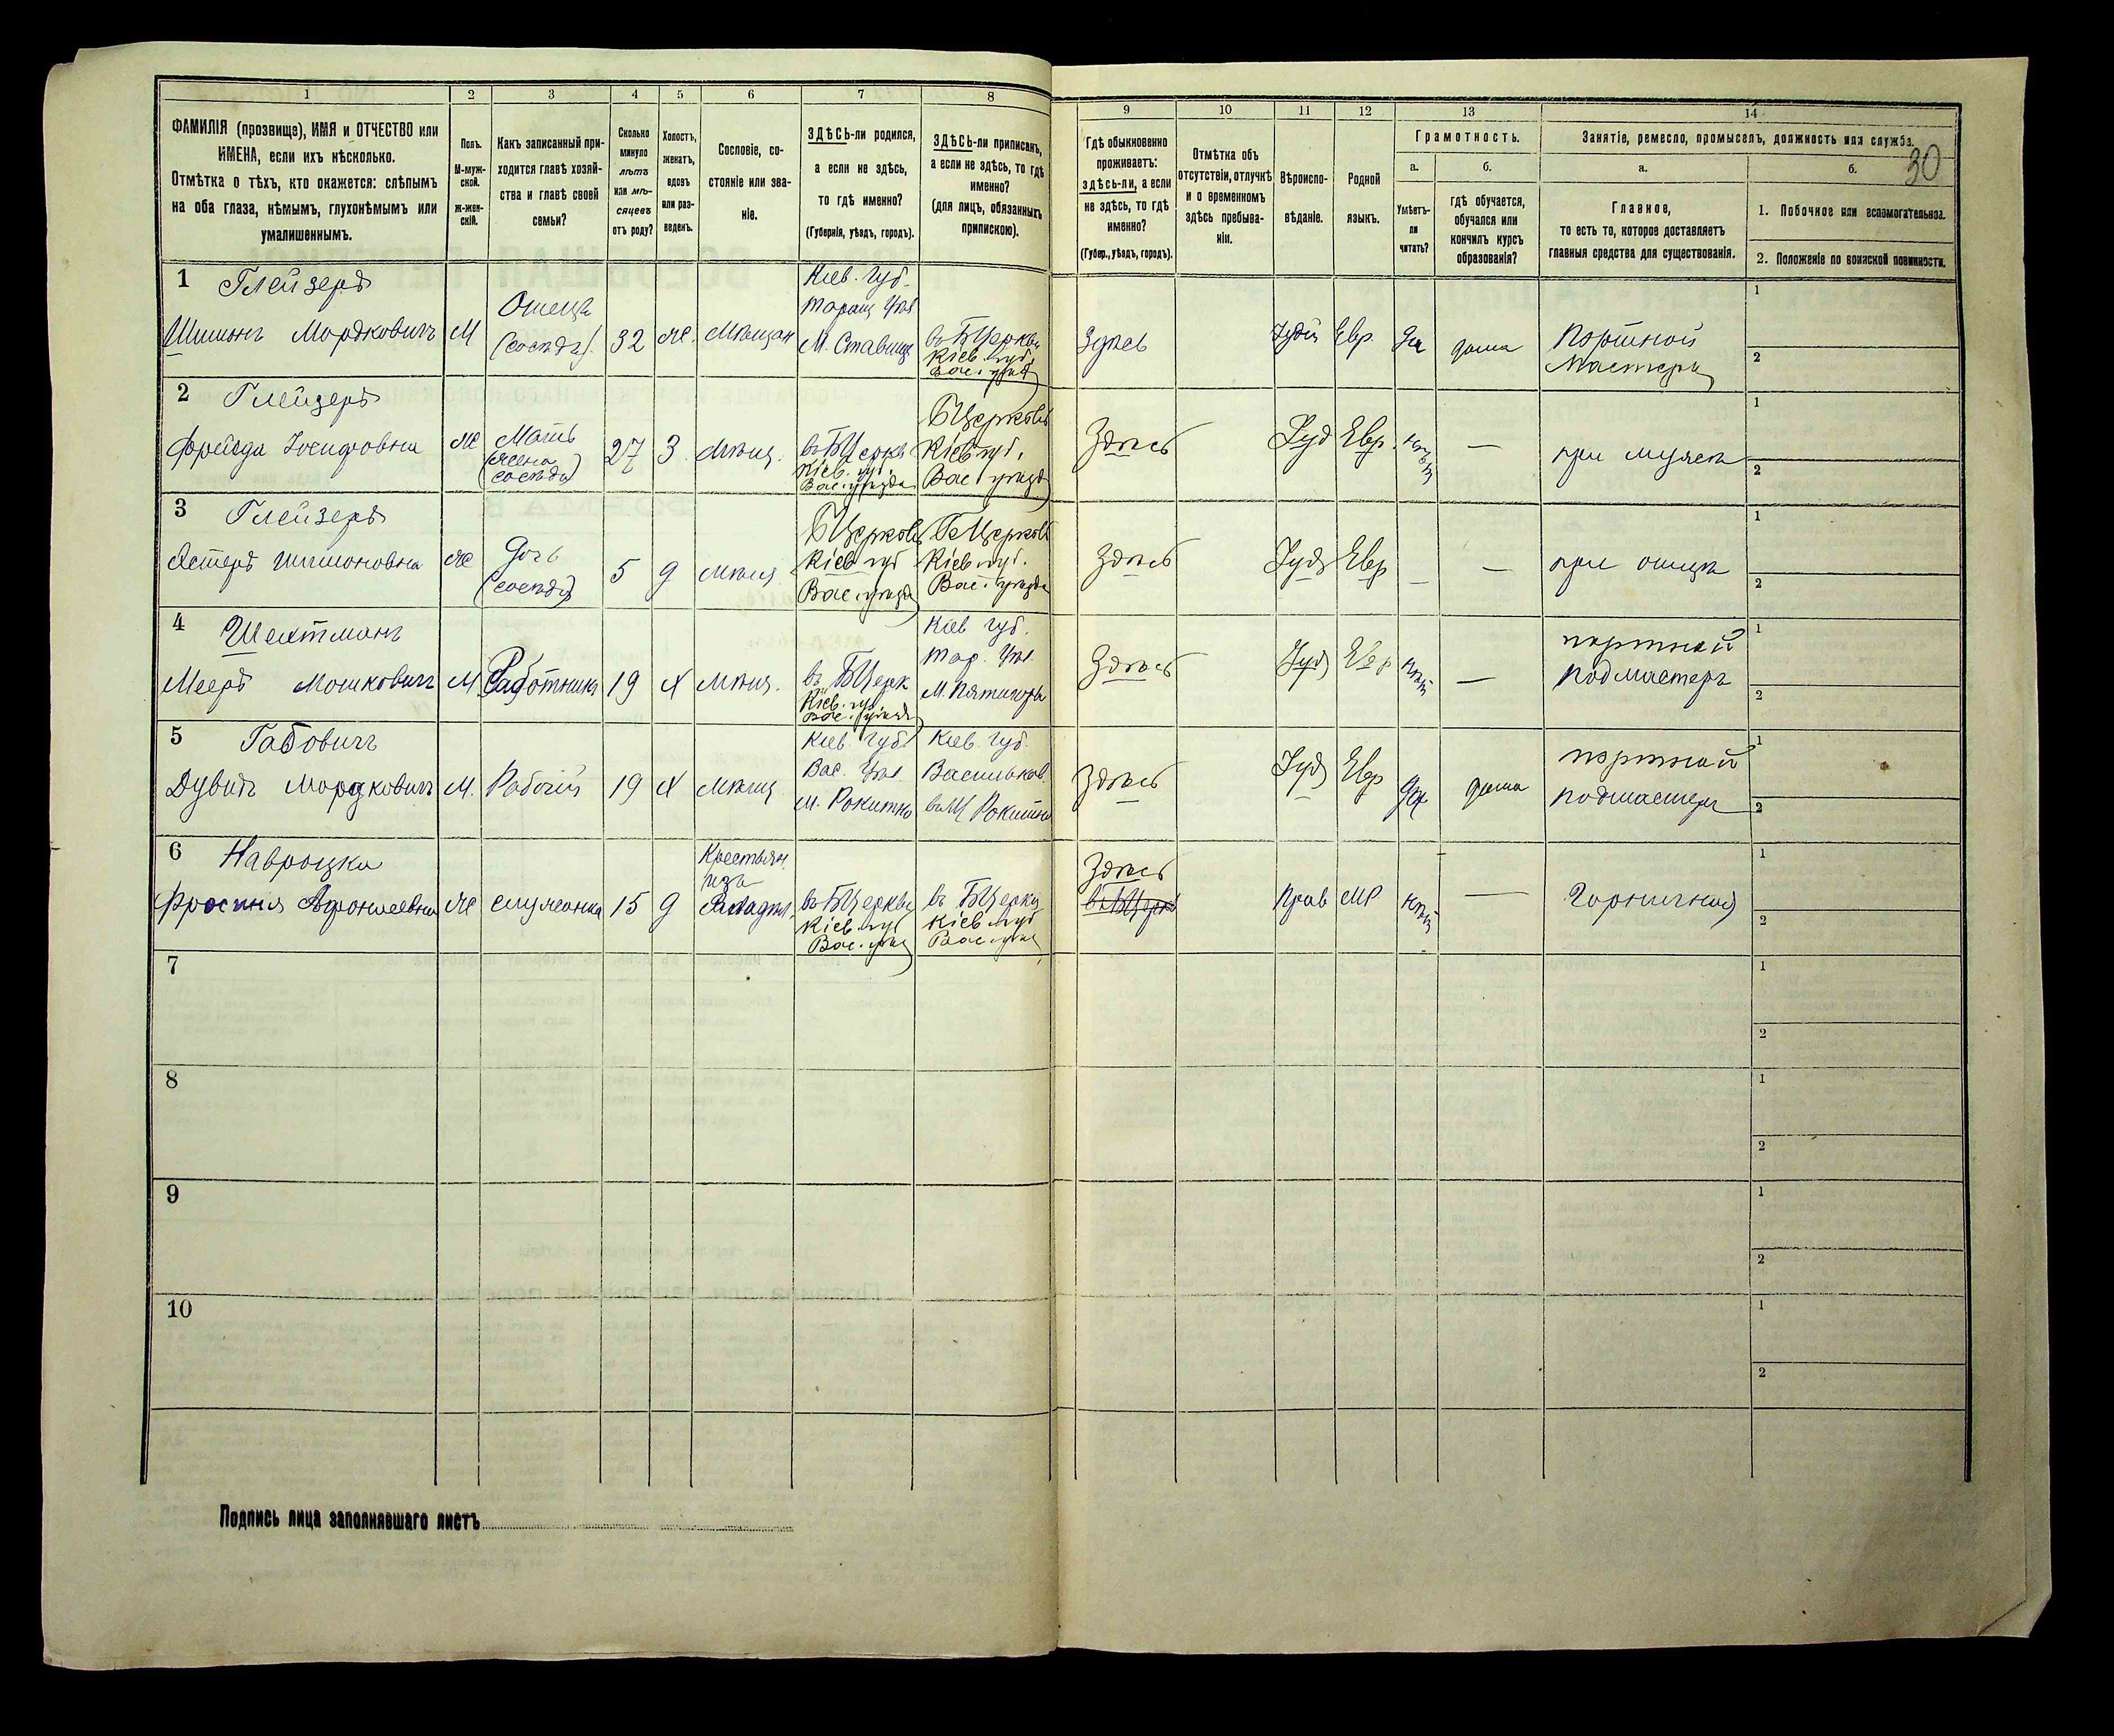 1
2
3
4
5
6
7
8
ФАМИЛІЯ (прозвище), ИМЯ и ОТЧЕСТВО или
ИМЕНА, если ихъ нѣсколько.
Отмѣтка о тѣхъ, кто окажется: слѣпымъ
на оба глаза, нѣмымъ, глухонѣмымъ или
умалишеннымъ.
Полъ.
М-муж-
ской.
ж-жен-
скій.
Какъ записанный при-
ходится главѣ хозяй-
ства и главѣ своей
семьи?
Сколько
минуло
лѣтъ
или мѣ-
сяцевъ
отъ роду?
Холостъ,
женатъ,
вдовъ
или раз-
веденъ.
Сословіе, со-
стояніе или зва-
ніе.
ЗДѢСЬ-ли родился,
а если не здѣсь,
то гдѣ именно?
(Губернія, уѣздъ, городъ).
ЗДѢСЬ-ли приписанъ,
а если не здѣсь, то гдѣ
именно?
(для лицъ, обязанныхъ
припискою).
9
10
11
12
13
14
Гдѣ обыкновенно
проживаетъ:
здѣсь-ли, а если
не здѣсь, то гдѣ
именно?
(Губер., уѣздъ, городъ).
Отмѣтка объ
отсутствіи, отлучкѣ
и о временномъ
здѣсь пребыва-
ніи.
Вѣроиспо-
вѣданіе.
Родной
языкъ.
Грамотность.
а.
Умѣетъ-
ли
читать?
б.
гдѣ обучается,
обучался или
кончилъ курсъ
образованія?
Занятіе, ремесло, промыселъ, должность или служба.
30
а.
Главное,
то есть то, которое доставляетъ
главныя средства для существованія.
б.
1. Побочное или вспомогательное.
2. Положеніе по воинской повинности.
1 Глейзеръ
Шимонъ Мордковичъ
М
Отецъ
(сосѣди)
32
же.
Мѣщан
Кіев. Губ.
Таращ Уѣз.
М. Ставище
въ БЦеркви
Кіев. губ.
Вас. уѣзд
Здѣсь
Іудей
Евр.
Да
дома
Портной
Мастеръ
1
2
2 Глейзеръ
Фрейда Іосифовна
Ж
Мать
(жена
сосѣди)
27
З.
Мѣщ.
въ БЦеркв
Кіев. губ.
Вас. уѣзда
БЦерковь
Кіев губ.
Вас. уѣзда
Здѣсь
Іуд
Евр.
нѣтъ
—
при мужѣ
1
2
3 Глейзеръ
Эстеръ Шимоновна
Ж
Дочь
(сосѣди)
5
д
мѣщ.
БЦерковь
Кіев губ
Вас. уѣзда
БЦерковь
Кіев губ.
Вас. уѣзда
Здѣсь
Іуд
Евр
—
—
при отцѣ
1
2
4 Шехтманъ
Мееръ Мошковичъ
М.
Работникъ
19
Х
мѣщ.
въ БЦерк
Кіев. губ.
Вас. уѣзда
Кіев губ.
Тар. Уѣз.
М. Пятигоры
Здѣсь
Іуд
Евр
нѣтъ
—
портной
Подмастеръ
1
2
5 Габовичъ
Дувидъ Мордковичъ
М.
Рабочій
19
Х
мѣщ
Кіев Губ
Вас. Уѣз.
м. Рокитно
Кіев. Губ.
Васильков.
въ М Рокитно
Здѣсь
Іуд
Евр
Да
дома
портной
подмастеръ
1
2
6 Навроцка
Фросиня
Ж
служанка
15
д
Крестьян.
изъ
въ БЦеркви
Кіев. губ
Вас. уѣзд
въ БЦеркв
Кіев. губ
Вас. уѣзд
Здѣсь
въ БЦеркв
Прав
МР
нѣтъ
—
Горничная
1
2
7
1
2
8
1
2
9
1
2
10
1
2
Подпись лица заполнявшаго листъ